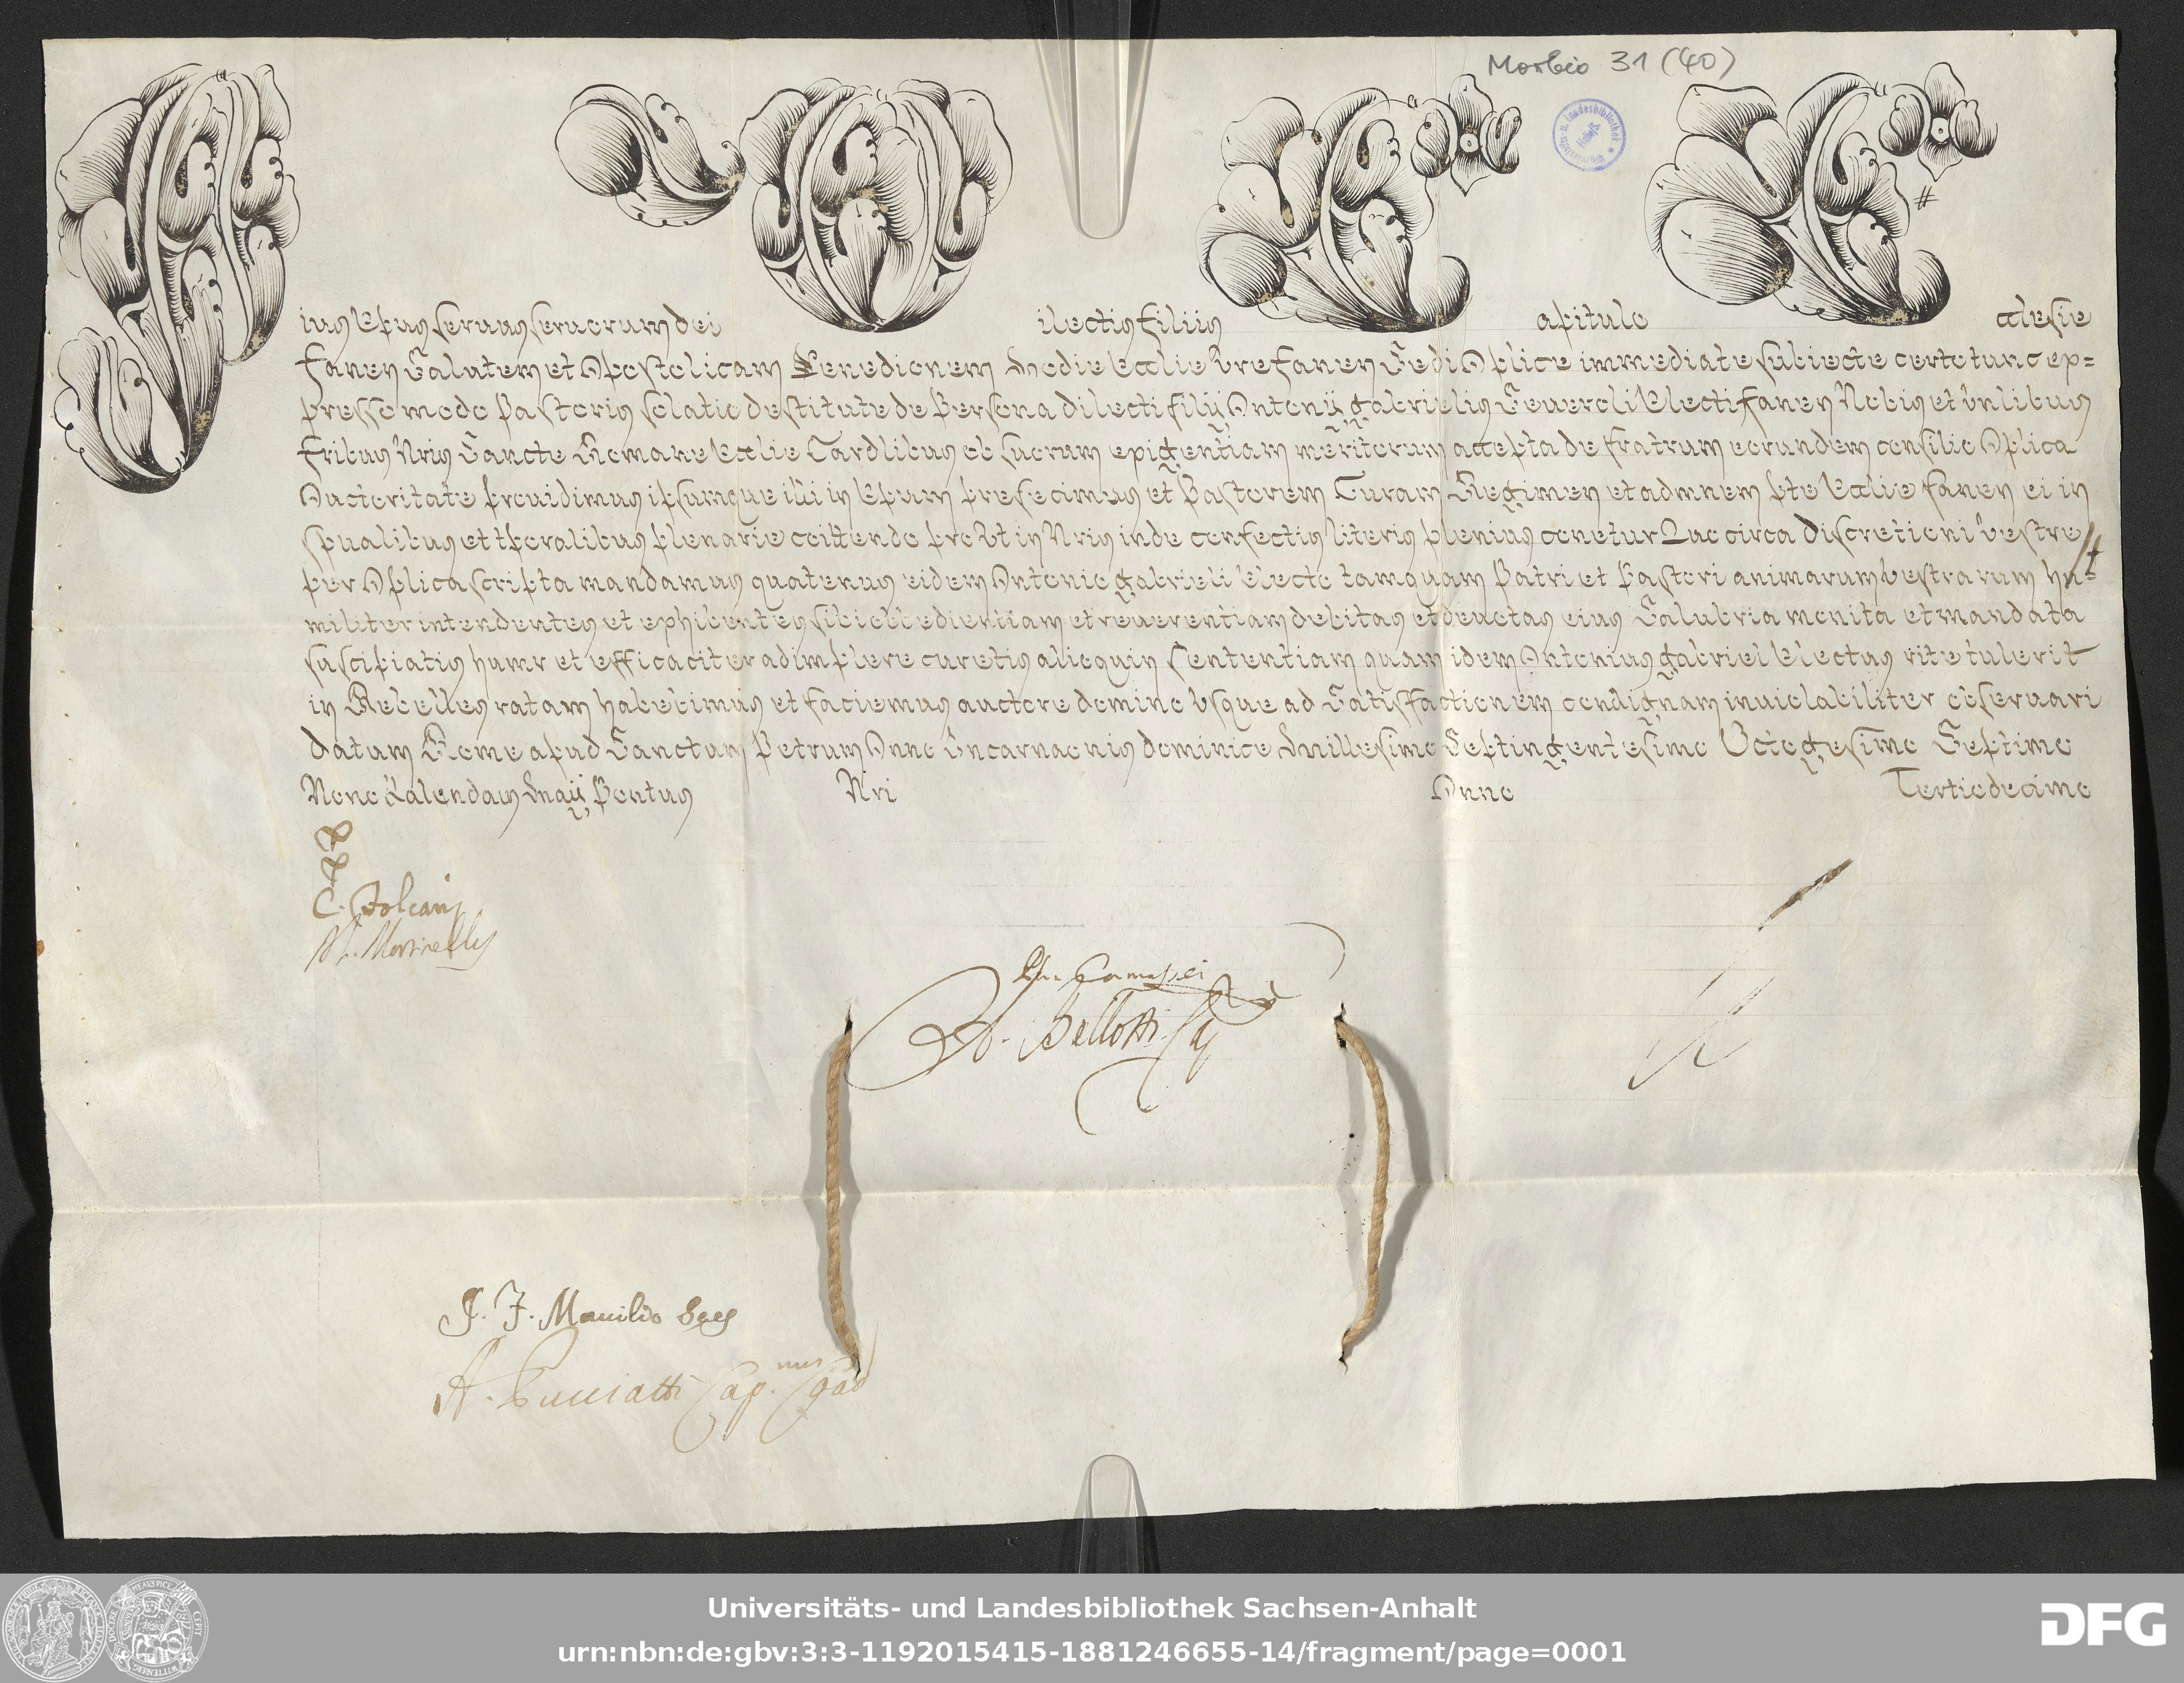 Morbio 31 (40)
ius Epus servus servorum dei ilectis filiis apitulo cclesie
fanen Salutem et Aplostolicam Benedictionem Hodie Ecclie vre fanen Sedi Aplice immediate subiecte certo tunc ex=
presso modo Pastoris solatio destitute de Persona dilecti filij Antonij gabrielis Severoli Electi fanen Nobis et vnlibus
fribus Nris Sancte Romane Ecclie Cardlibus ob suorum exigentiam meritorum accepta de fratrum eorundem consilio Aplica
Auctoritate prouidimus ipsumque illi in Epum prefecimus et Pastorem Curam Regimen et admnem pte Ecclie fanen ei in
spualibus et tporalibus plenarie coittendo proVt in Nris inde confectis literis plenius conetur Quocirca discretioni vestre #
per Aplica scripta mandamus quatenus eidem Antonio gabrieli Electo tamquam Patri et Pastori animarum vestrarum hu=
militer intendentes et exhibentes sibi obbedientiam et reuerentiam debitas et deuotas eius Salubria monita et mandata
suscipiatis humr et efficaciter adimplere curetis alioquin Sententiam quam idem Antonius gabriel Electus rite tulerit
in Rebelles ratam habebimus et faciemus auctore domino vsque ad Satisfactionem condignam inuiolabiliter obseruari
datum Rome apud Sanctum Petrum Anno Incarnaonis dominice Millesimo Septingentesimo Octogesimo Septimo
Nono Kalendas Maij Pontus Nri Anno Tertiodecimo
M. Martinelly
Bellotti
J. F. Mauilio
A. Cap.nus
Universitäts- und Landesbibliothek Sachsen-Anhalt
urn:nbn:de:gbv:3:3-1192015415-1881246655-14/fragment/page=0001
DFG